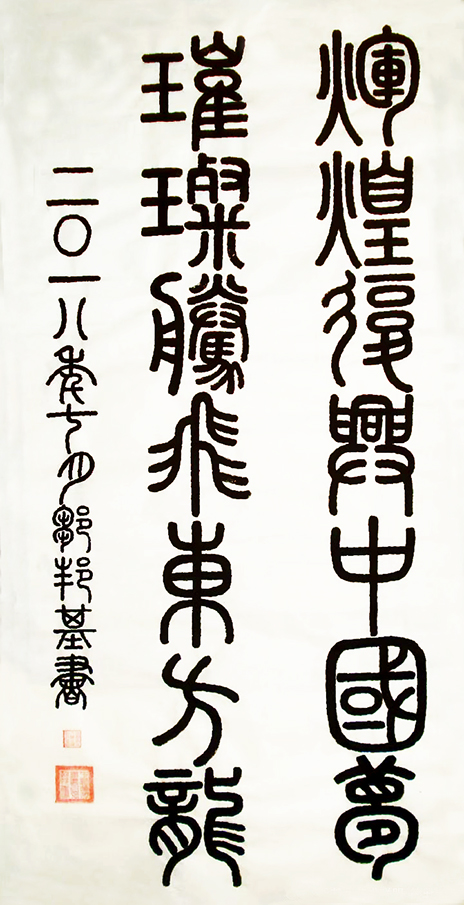 輝煌復興中國夢
璀璨騰飛東方龍
二〇一八年七月鄒邦基書